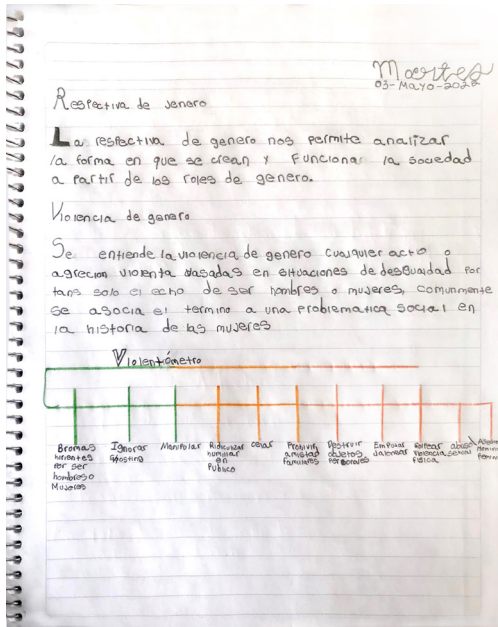 Martes
03-Mayo-2022
Respectiva de jenero
La respectiva de genero nos permite analizar
la forma en que se crean y Funciona la sociedad
a partir de los roles de genero.
Violencia de genero
Se entiende la violencia de genero cualquier acto o
agrecion violenta basadas en situaciones de desigualdad por
tans solo el echo de ser hombres o mujeres, comunmente
se asocia el termino a una problematica social en
la historia de las mujeres
Violentómetro
Bromas
hirientes
por ser
hombres o
Mujeres
Ignorar
Ghosting
Manipolar
Ridiculizar
humillar
en
Publico
celar
Prohivir
amistad
familiares
Destruir
objetos
personales
Empujar
Jalonear
Golpear
violencia
fisica
abuso
sexual